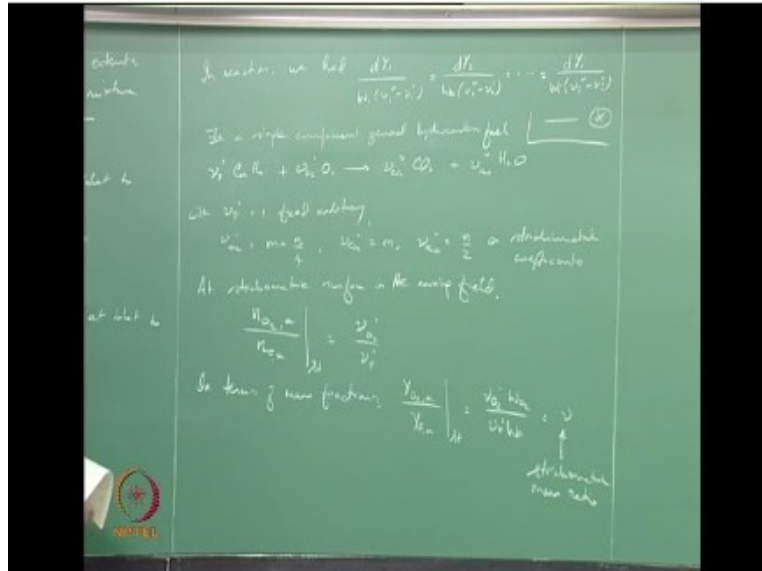 extents
mixture
In reaction, we had dY₁/W₁(ν₁″-ν₁′) = dY₂/W₂(ν₂″-ν₂′) = ... = dYᵢ/Wᵢ(νᵢ″-νᵢ′)
For a single component general hydrocarbon fuel
ν_F′ CₘHₙ + ν_O₂′ O₂ → ν_CO₂″ CO₂ + ν_H₂O″ H₂O
with ν_F′ = 1 fixed arbitrary,
ν_O₂′ = m+n/4, ν_CO₂″ = m, ν_H₂O″ = n/2 stoichiometric
coefficients
At stoichiometric surface in the mixing field,
n_O₂,u/n_F,u |st = ν_O₂′/ν_F′
In terms of mass fractions, Y_O₂,u/Y_F,u |st = ν_O₂′ W_O₂/ν_F′ W_F = ν
stoichiometric
mass ratio
inlet to
NPTEL